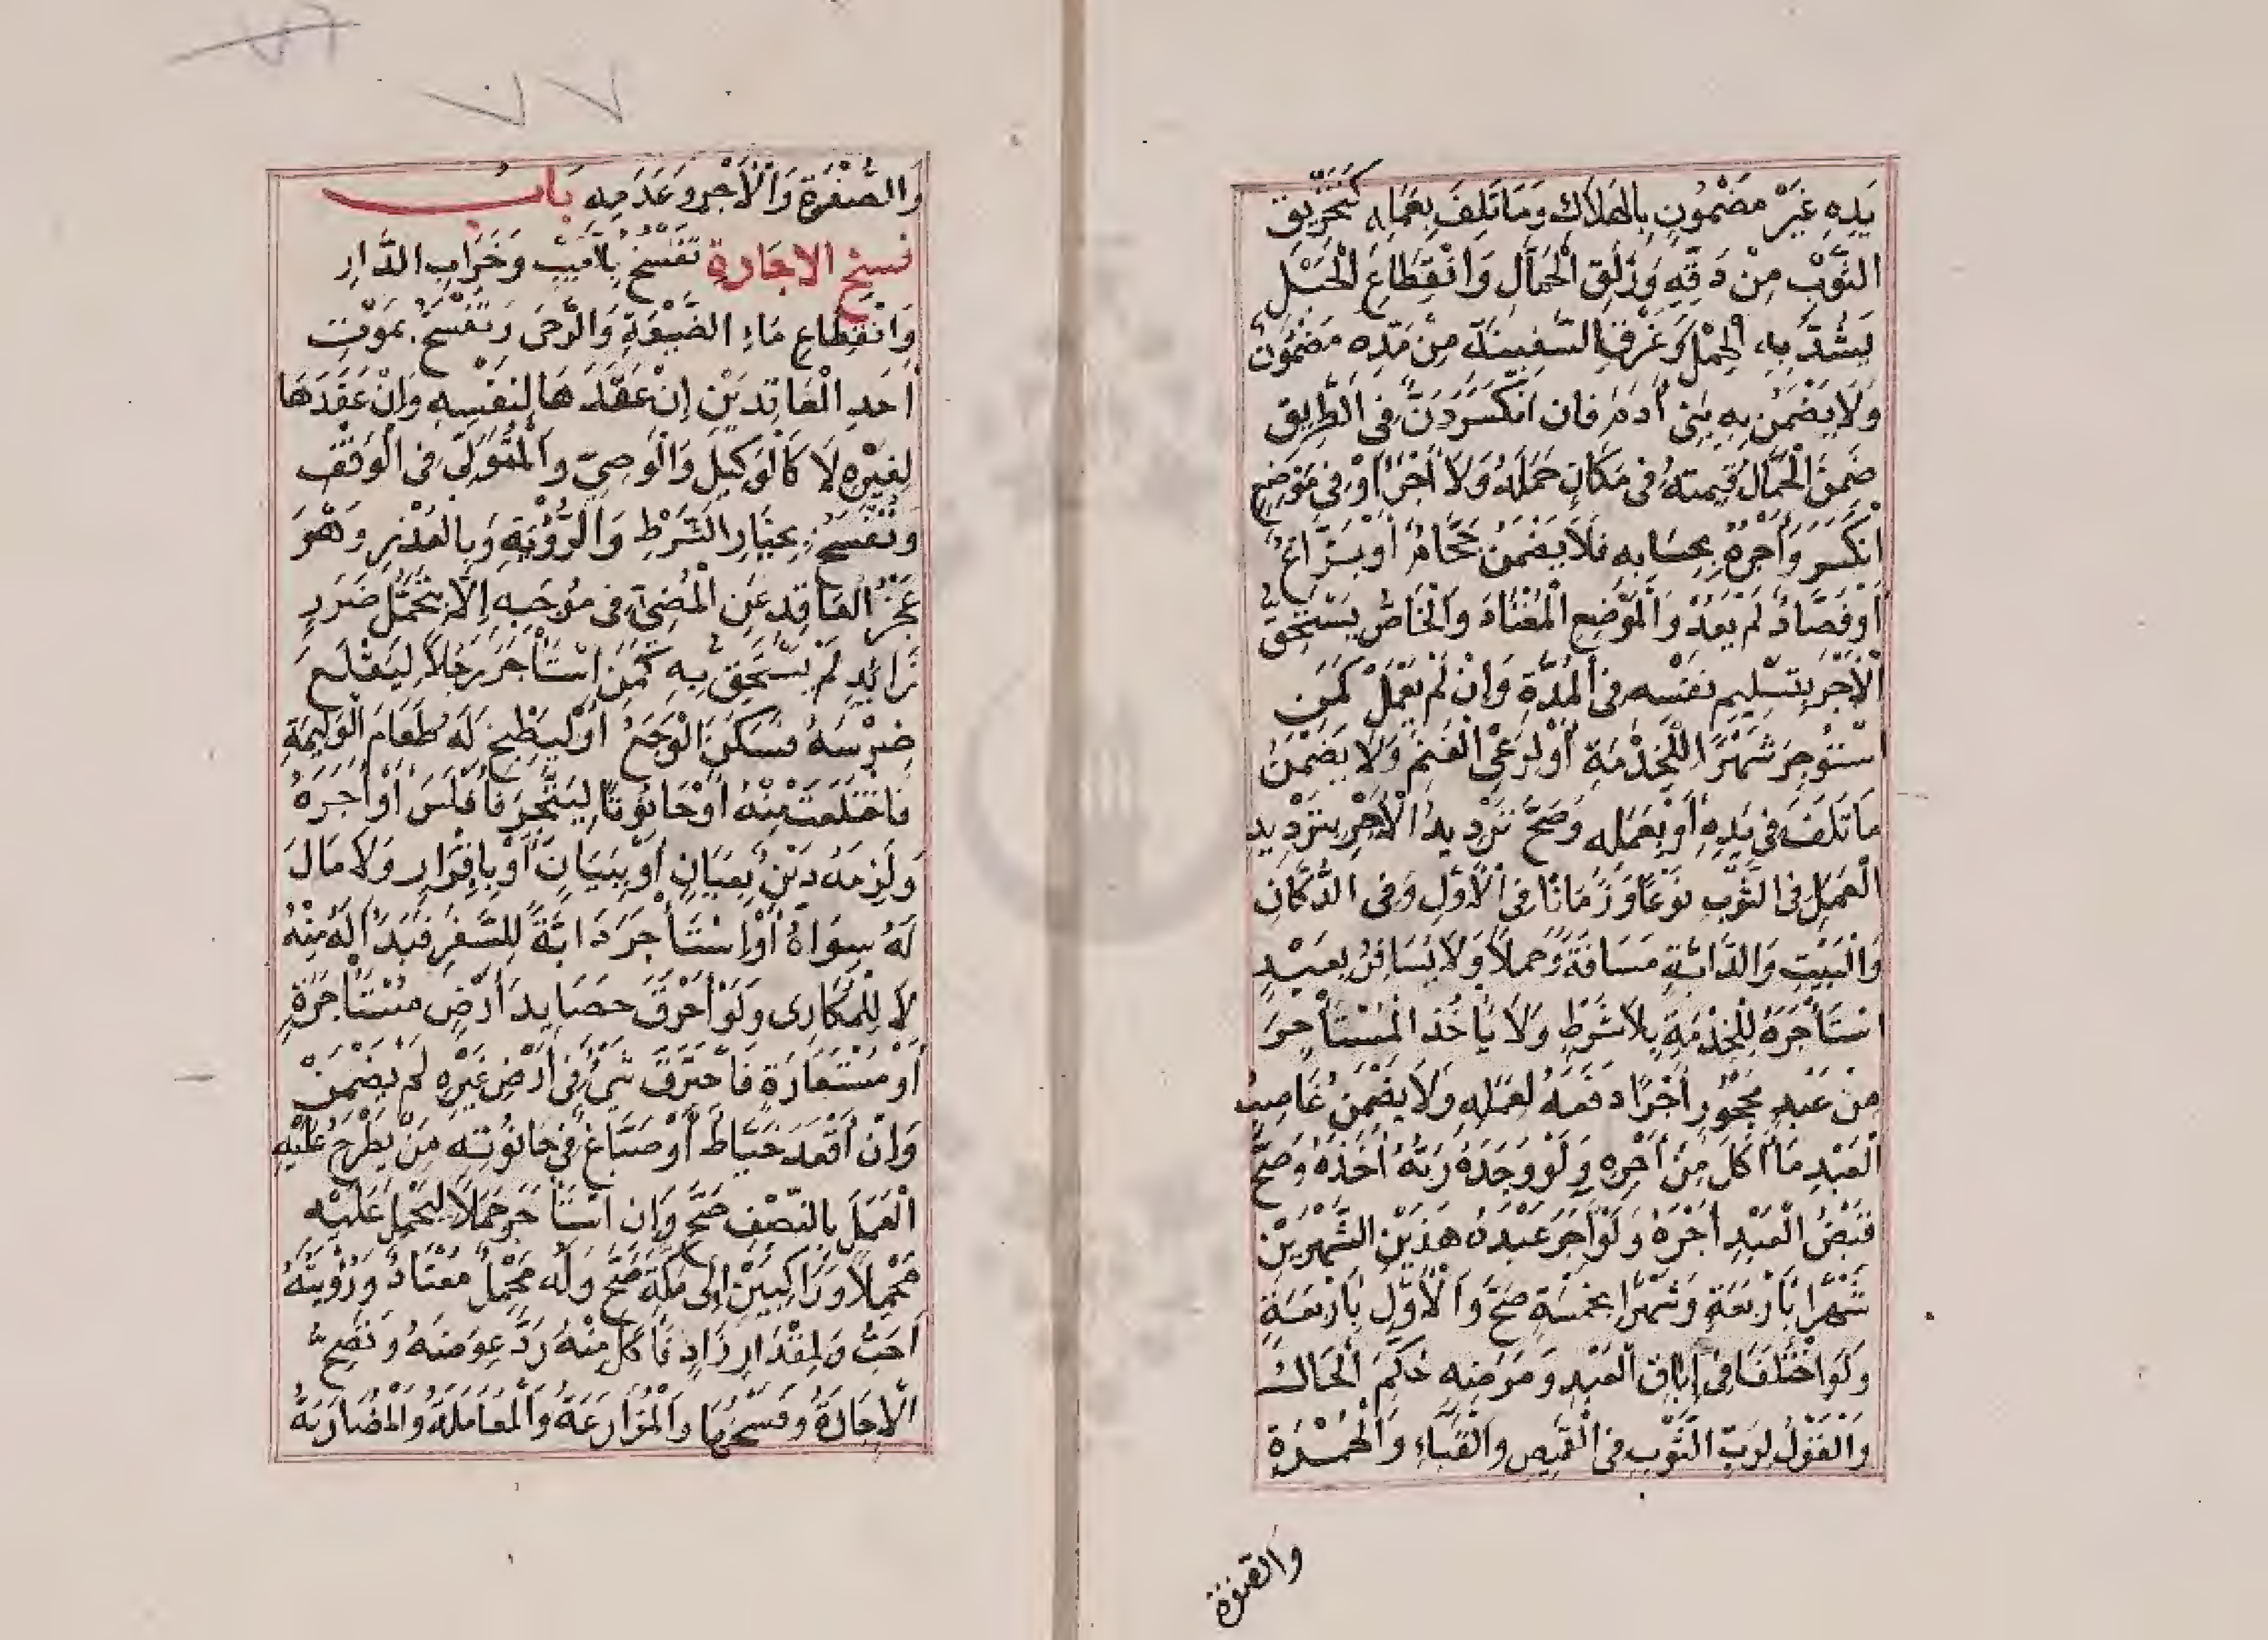 يَدِهِ غَيْرُ مَضْمُونٍ بِالهَلَاكِ وَمَا تَلِفَ بِعَمَلِهِ كَتَخْرِيقِ
الثَّوْبِ مِنْ دَقِّهِ وَزَلَقِ الْحَمَّالِ وَانْقِطَاعِ الْحَبْلِ
يَشُدُّ بِهِ الْحِمْلَ وَغَرْقِ السَّفِينَةِ مِنْ مَدِّهِ مَضْمُونٌ
وَلَا يَضْمَنُ بِهِ بَنِى أَدَمَ فَانِ انْكَسَرَ دَنٌّ فِى الطَّرِيقِ
ضَمِنَ الْحَمَّالُ قِيمَتَهُ فِى مَكَانِ حَمْلِهِ وَلَا أَجْرَ أَوْ فِى مَوْضِعِ
انْكَسَرَ وَأَجْرُهُ بِحِسَابِهِ فَلَا يَضْمَنُ حَجَّامٌ أَو بَزَّاغٌ
أَوْ فَصَّادٌ لَمْ يَعْدُ وَالْمَوْضِعِ الْمُعْتَادَ وَالْخَاصُّ يَسْتَحِقُّ
الْأَجْرَ بِتَسْلِيمِ نَفْسِهِ فِى الْمُدَّةِ وَإِنْ لَمْ يَعْمَلْ كَمَنِ
اسْتُؤْجِرَ شَهْرًا لِلْخِدْمَةِ أَوْ لِرَعْىِ الْغَنَمِ وَلَا يَضْمَنُ
مَا تَلَفَ فِى يَدِهِ أَو بِعَمَلِهِ وَصَحَّ تَرْدِيدُ الْأَجْرِ بِتَرْدِيدِ
الْعَمَلِ فِى الثَّوْبِ نَوْعًا وَزَمَانًا فِى الْأَوَّلِ وَفِى الدُّكَّانِ
وَالْبَيْتِ وَالدَّابَّةِ مَسَافَةً وَحِمْلًا وَلَا يُسَافِرُ بِعَبْدٍ
اسْتَأْجَرَهُ لِلْخِدْمَةِ بِلَا شَرْطٍ وَلَا يَأْخُذُ الْمُسْتَأْجِرُ
مِنْ عَبْدٍ مَحْجُورٍ أَجْرًا دَفَعَهُ لِعَمَلِهِ وَلَا يَضْمَنُ غَاصِبُ
الْعَبْدِ مَا أَكَلَ مِنْ أَجْرِهِ وَلَوْ وَجَدَهُ رَبُّهُ أَخَذَهُ وَصَحَّ
قَبْضُ الْعَبْدِ أَجْرَهُ وَلَوْ آجَرَ عَبْدَهُ هَذَيْنِ الشَّهْرَيْنِ
شَهْرًا بَأَرْبَعَةٍ وَشَهْرًا بِخَمْسَةٍ صَحَّ وَالْأَوَّلُ بِأَرْبَعَةٍ
وَلَوِ اخْتَلَفَا فِى إِبَاقِ الْعَبْدِ وَمَرَضِهِ حُكِّمَ الْحَالُ
وَالْقَوْلُ لِرَبِّ الثَّوْبِ فِى الْقَمِيصِ وَالْقَبَاءِ وَالْحُمْرَةِ
والصفرة
وَالصُّفْرَةِ وَالْأَجْرِ وَعَدَمِهِ بَابُ
فسخ الاجارة تُفْسَخُ بِالْعَيْبِ وَخَرَابِ الدَّارِ
وَانْقِطَاعِ مَاءِ الضَّيْعَةِ وَالرَّحَى وَتَنْفَسِخُ بِمَوْتِ
أَحَدِ الْعَاقِدَيْنِ إِنْ عَقَدَهَا لِنَفْسِهِ وَإِنْ عَقَدَهَا
لِغَيْرِهِ لَا كَالْوَكِيلِ وَالْوَصِيِّ وَالْمُتَوَلِّى فِى الْوَقْفِ
وَتُفْسَخُ بِخِيَارِ الشَّرْطِ وَالرُّؤْيَةِ وَبِالْعُذْرِ وَهْوَ
عَجْزُ الْعَاقِدِ عَنِ الْمُضِىِّ فِى مُوجَبِهِ إِلَّا بِتَحَمُّلِ ضَرَرٍ
زَائِدٍ لَمْ يَسْتَحِقَّ بِهِ كَمَنِ اسْتَأْجَرَ رَجُلًا لِيَقْلَعَ
ضِرْسَهُ فَسَكَنَ الْوَجَعُ أَوْ لِيَطْبُخَ لَهُ طَعَامَ الْوَلِيمَةِ
فَاخْتَلَعَتْ مِنْهُ أَوْ حَانُوتًا لِيَتَّجِرَ فَأَفْلَسَ أَوْ أَجَرَهُ
وَلَزِمَهُ دَيْنٌ بِعِيَانٍ أَوْ بِبَيَانٍ أَوْ بِإِقْرَارٍ وَلَا مَالَ
لَهُ سِوَاهُ أَوْ اسْتَأْجَرَ دَابَّةً لِلسَّفَرِ فَبَدَا لَهُ مِنْهُ
لَا لِلْمُكَارِى وَلَوْ أَحْرَقَ حَصَايِدَ أَرْضٍ مُسْتَأْجَرَةٍ
أَوْ مُسْتَعَارَةٍ فَاحْتَرَقَ شَىْءٌ فِى أَرْضِ غَيْرِهِ لَمْ يَضْمَنْ
وَإِنْ أَقْعَدَ خَيَّاطٌ أَوْ صَبَّاغٌ فِى حَانُوتِهِ مَنْ يَطْرَحُ عَلَيْهِ
الْعَمَلَ بِالنِّصْفِ صَحَّ وَإِنِ اسْتَأْجَرَ جَمَلًا لِيَحْمِلَ عَلَيْهِ
مَحْمِلًا وَرَاكِبَيْنِ إِلَى مَكَّةَ صَحَّ وَلَهُ مَحْمِلٌ مُعْتَادٌ وَرُؤْيَتُهُ
أَحَبُّ وَلِمِقْدَارِ زَادٍ فَأَكَلَ مِنْهُ رَدَّ عِوَضَهُ وَتَصِحُّ
الْإِجَارَةُ وَفَسْخُهَا وَالْمُزَارَعَةُ وَالْمُعَامَلَةُ وَالْمُضَارَبَةُ